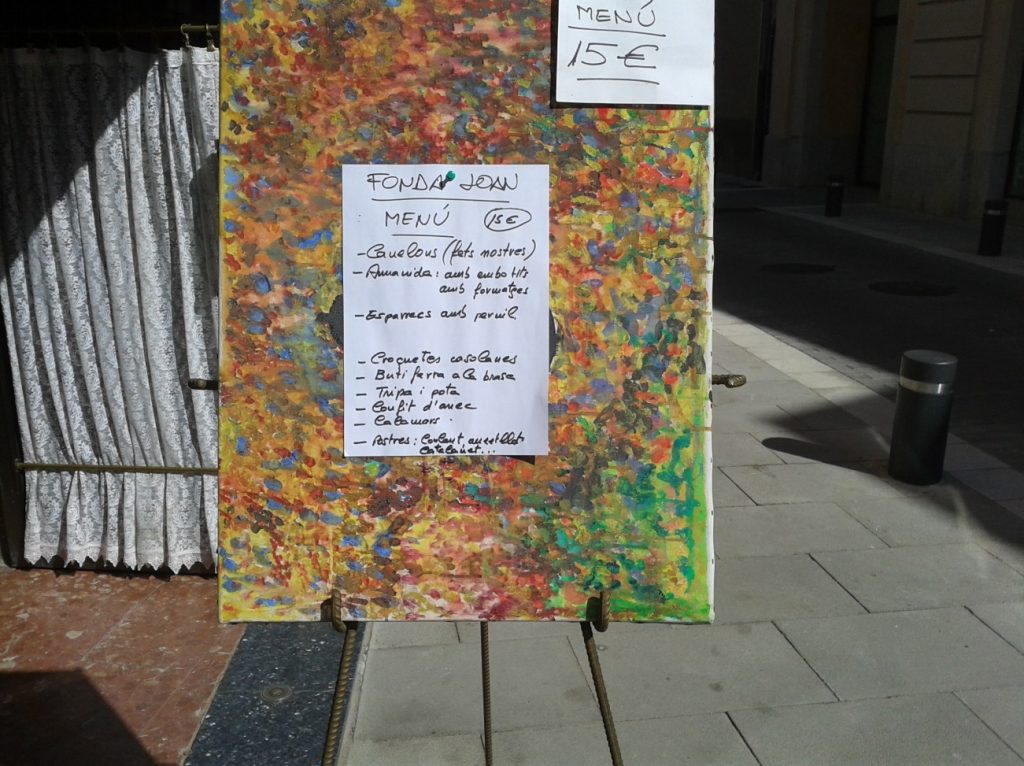 MENÚ
15€
FONDA JOAN
MENÚ 15€
- Canelous (fets nostres)
- Amanida: amb embotits
amb formatges
- Esparrecs amb pernil
- Croquetes casolanes
- Butiferra a la brasa
- Tripa i pota
- Confit d'anec
- Calamars
- Postres: Coulant
Catalanet...